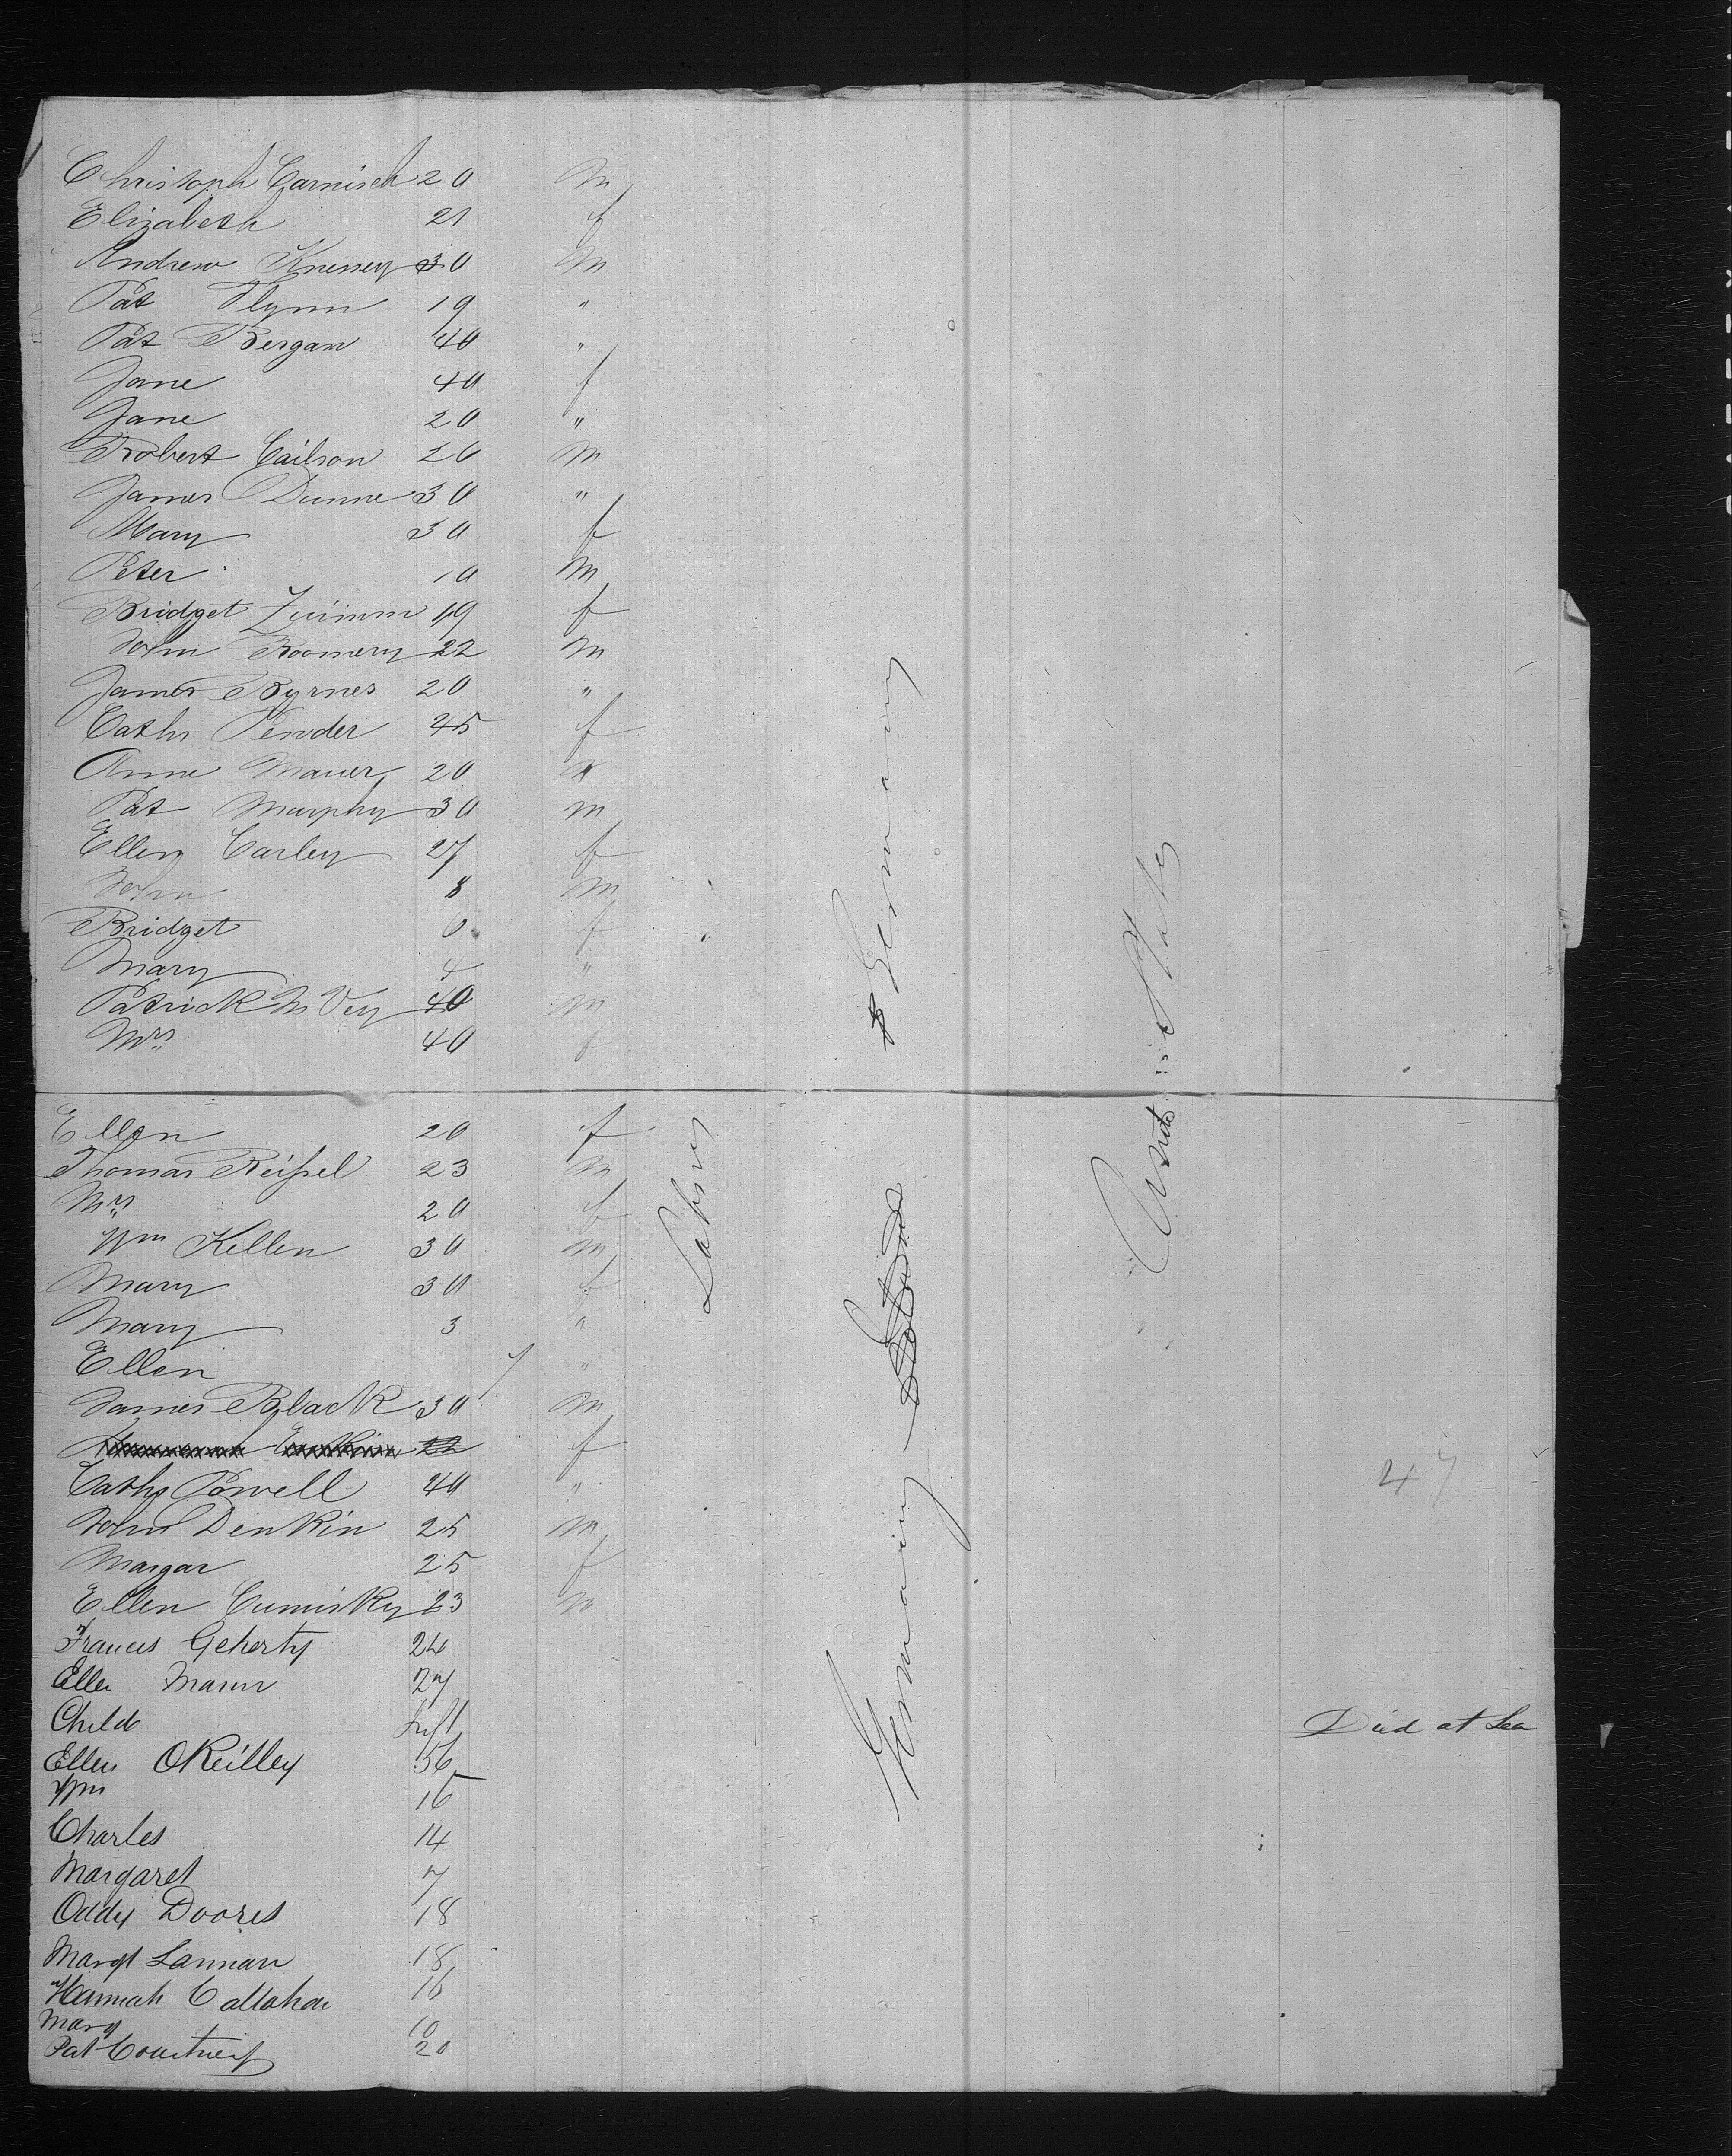 Christoph Carnisch 20 M
Elizabeth 21 f
Andrew Knesney 30 M
Pat Flynn 19 "
Pat Bergan 40 "
Jane 40 f
Jane 20 "
Robert Cailson 20 M
James Dunne 30 "
Mary 30 f
Peter 10 M
Bridget 19 f
John Roomery 22 M
James Byrnes 20 "
Cathr Pender 45 f
Anne Mauer 20 "
Pat Murphy 30 M
Ellen Carley 27 f
John 8 M
Bridget 6 f
Mary 4 "
Patrick McVey 40 M
Mrs 40 f
Ellen 20 f
Thomas Reissel 23 M
Mrs 20 f
Wm Kellen 30 M
Mary 30 f
Mary 3 "
Ellen 7 "
James Black 30 M
22 f
Cathr Powell 40 "
John Denkin 25 M
Margar 25 f
Ellen Cumisky 23
Frances Geherty 24
Ellen Mann 27
Child Inft Died at Sea
Ellen OReilley 56
Wm 15
Charles 14
Margaret 7
Oddy Doores 18
Margt Lannan 18
Hannah Callahan 16
Mary 10
Pat Courtney 20
Labrer
Germany
Germany
United States
47